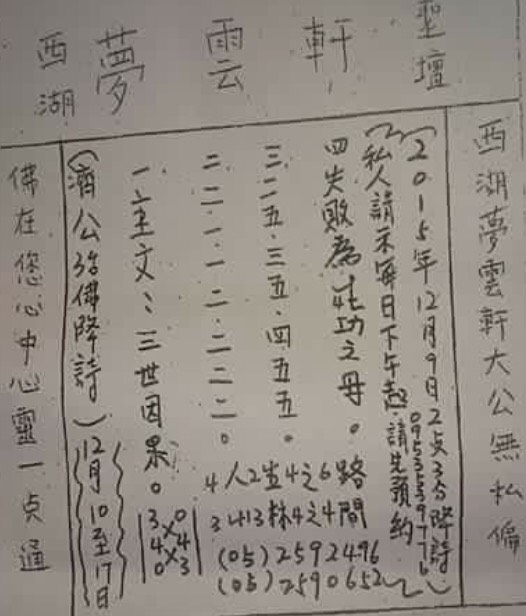 西湖夢雲軒聖壇
西湖夢雲軒大公無私偏
(2015年12月9日2点3分降詩)
(私人請示每日下午起.請先預約)
四失敗為成功之母。
三二五.三五.四五五。
二二一一二.二二二。
一主文:三世因果。
(濟公活佛降詩)
{12月10至17日}
佛在您心中心靈一点通
4人2生4之6路
3井13林4之4間
(05)2592496
(05)2590652
30
44
03